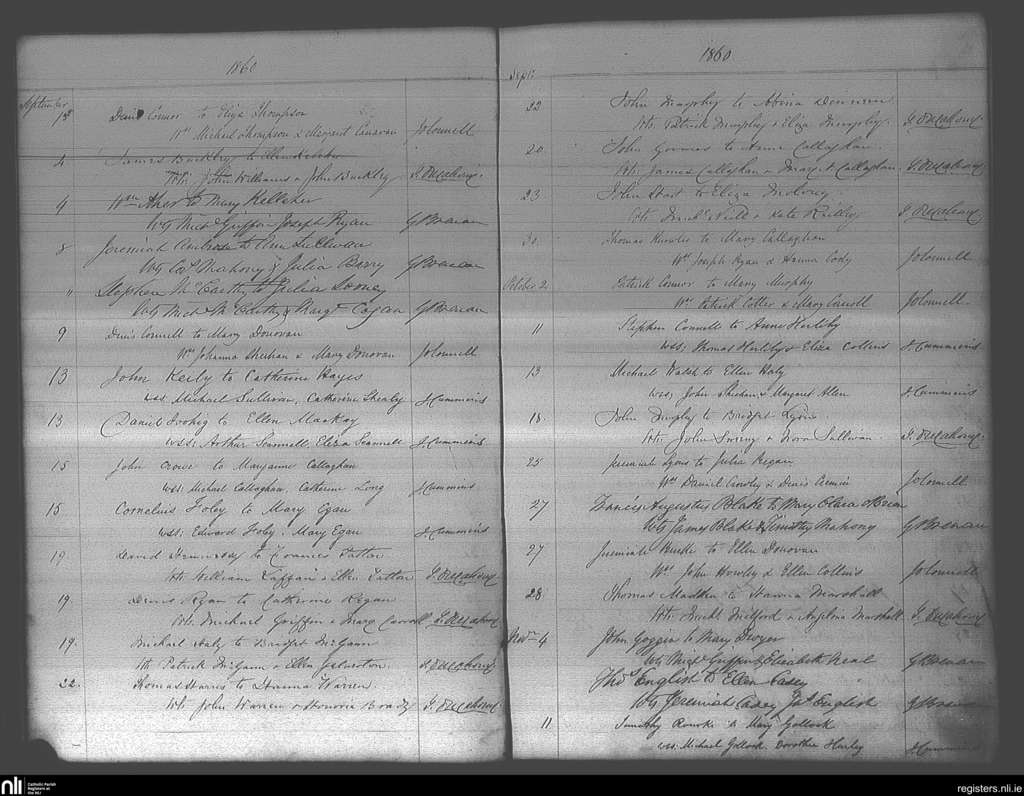 1860
September
1st Denis Connor to Eliza Thompson
Ws Michael Thompson & Margaret Canavan JOConnell
4 James Buckley to Ellen
Wts John Williams & John Buckley
4 Wm Aher to Mary Kelleher
Wts Michl Griffin Joseph Ryan
8 Jeremiah Ambrose to Ann Sullivan
Wts Cas Mahony & Julia Barry
" Stephen McCarthy to Julia Looney
Wts Michl McCarthy & Margt Cogan
9 Denis Connell to Mary Donovan
Ws Johanna Sheehan & Mary Donovan JOConnell
13 John Keily to Catherine Hayes
wss Michael Sullivan, Catherine Shealy J Cummins
13 Daniel to Ellen Mackey
wss; Arthur Scannell, Eliza Scannell J Cummins
15 John Crowe to Maryanne Callaghan
wss; Michael Callaghan, Catherine Long J Cummins
15 Cornelius Foley to Mary Egan
wss; Edward Foley, Mary Egan J Cummins
19 David Hennessy to Frances
Wts William & Ellen
19. Denis Ryan to Catherine Regan
Wts. Michael Griffin & Mary Carroll
19. Michael Haly to Bridget McGann
Wts Patrick McGann & Ellen
22. Thomas Harris to Hanna Warren
Wts John Warren & Honoria Brady
1860
Sept:
22 John Murphy to Abina
Wts. Patrick Murphy & Eliza Murphy.
20. John to Anne Callaghan.
Wts. James Callaghan & Margt Callaghan
23 John to Eliza Molony
Wts & Kate Reilly
30. Thomas to Mary Callaghan
Ws Joseph Ryan & Hanna Cody JOConnell
October 2 Patrick Connor to Mary Murphy
Ws Patrick Cotter & Mary Carroll JOConnell
11 Stephen Connell to Anne Hurlihy
wss; Thomas Hurlihy & Eliza Collins J Cummins
13 Michael Walsh to Ellen Haly
wss; John Sheehan & Margaret Allen J Cummins
18. John Murphy to Bridget Lyons
Wts. John & Nora Sullivan
25 Jeremiah Lyons to Julia Regan
Ws Daniel Crowley & Denis JOConnell
27 Francis Augustus Blake to Mary Clara OBrien
Wts James Blake & Timothy Mahony
27 Jeremiah Burke to Ellen Donovan
Ws John & Ellen Collins JOConnell
28 Thomas to Hanna Marshall
Wts. Michl & Angelina Marshall
Novr 4 John Goggin to Mary Dwyer
Wts Michl Griffin & Elizabeth Neal
Thos English to Ellen Casey
Wts Jeremiah Casey Jas English
11 Timothy Rourke to Mary
wss. Michael Dorothea Hurley J Cummins
nli
Catholic Parish
Registers at
the NLI
registers.nli.ie